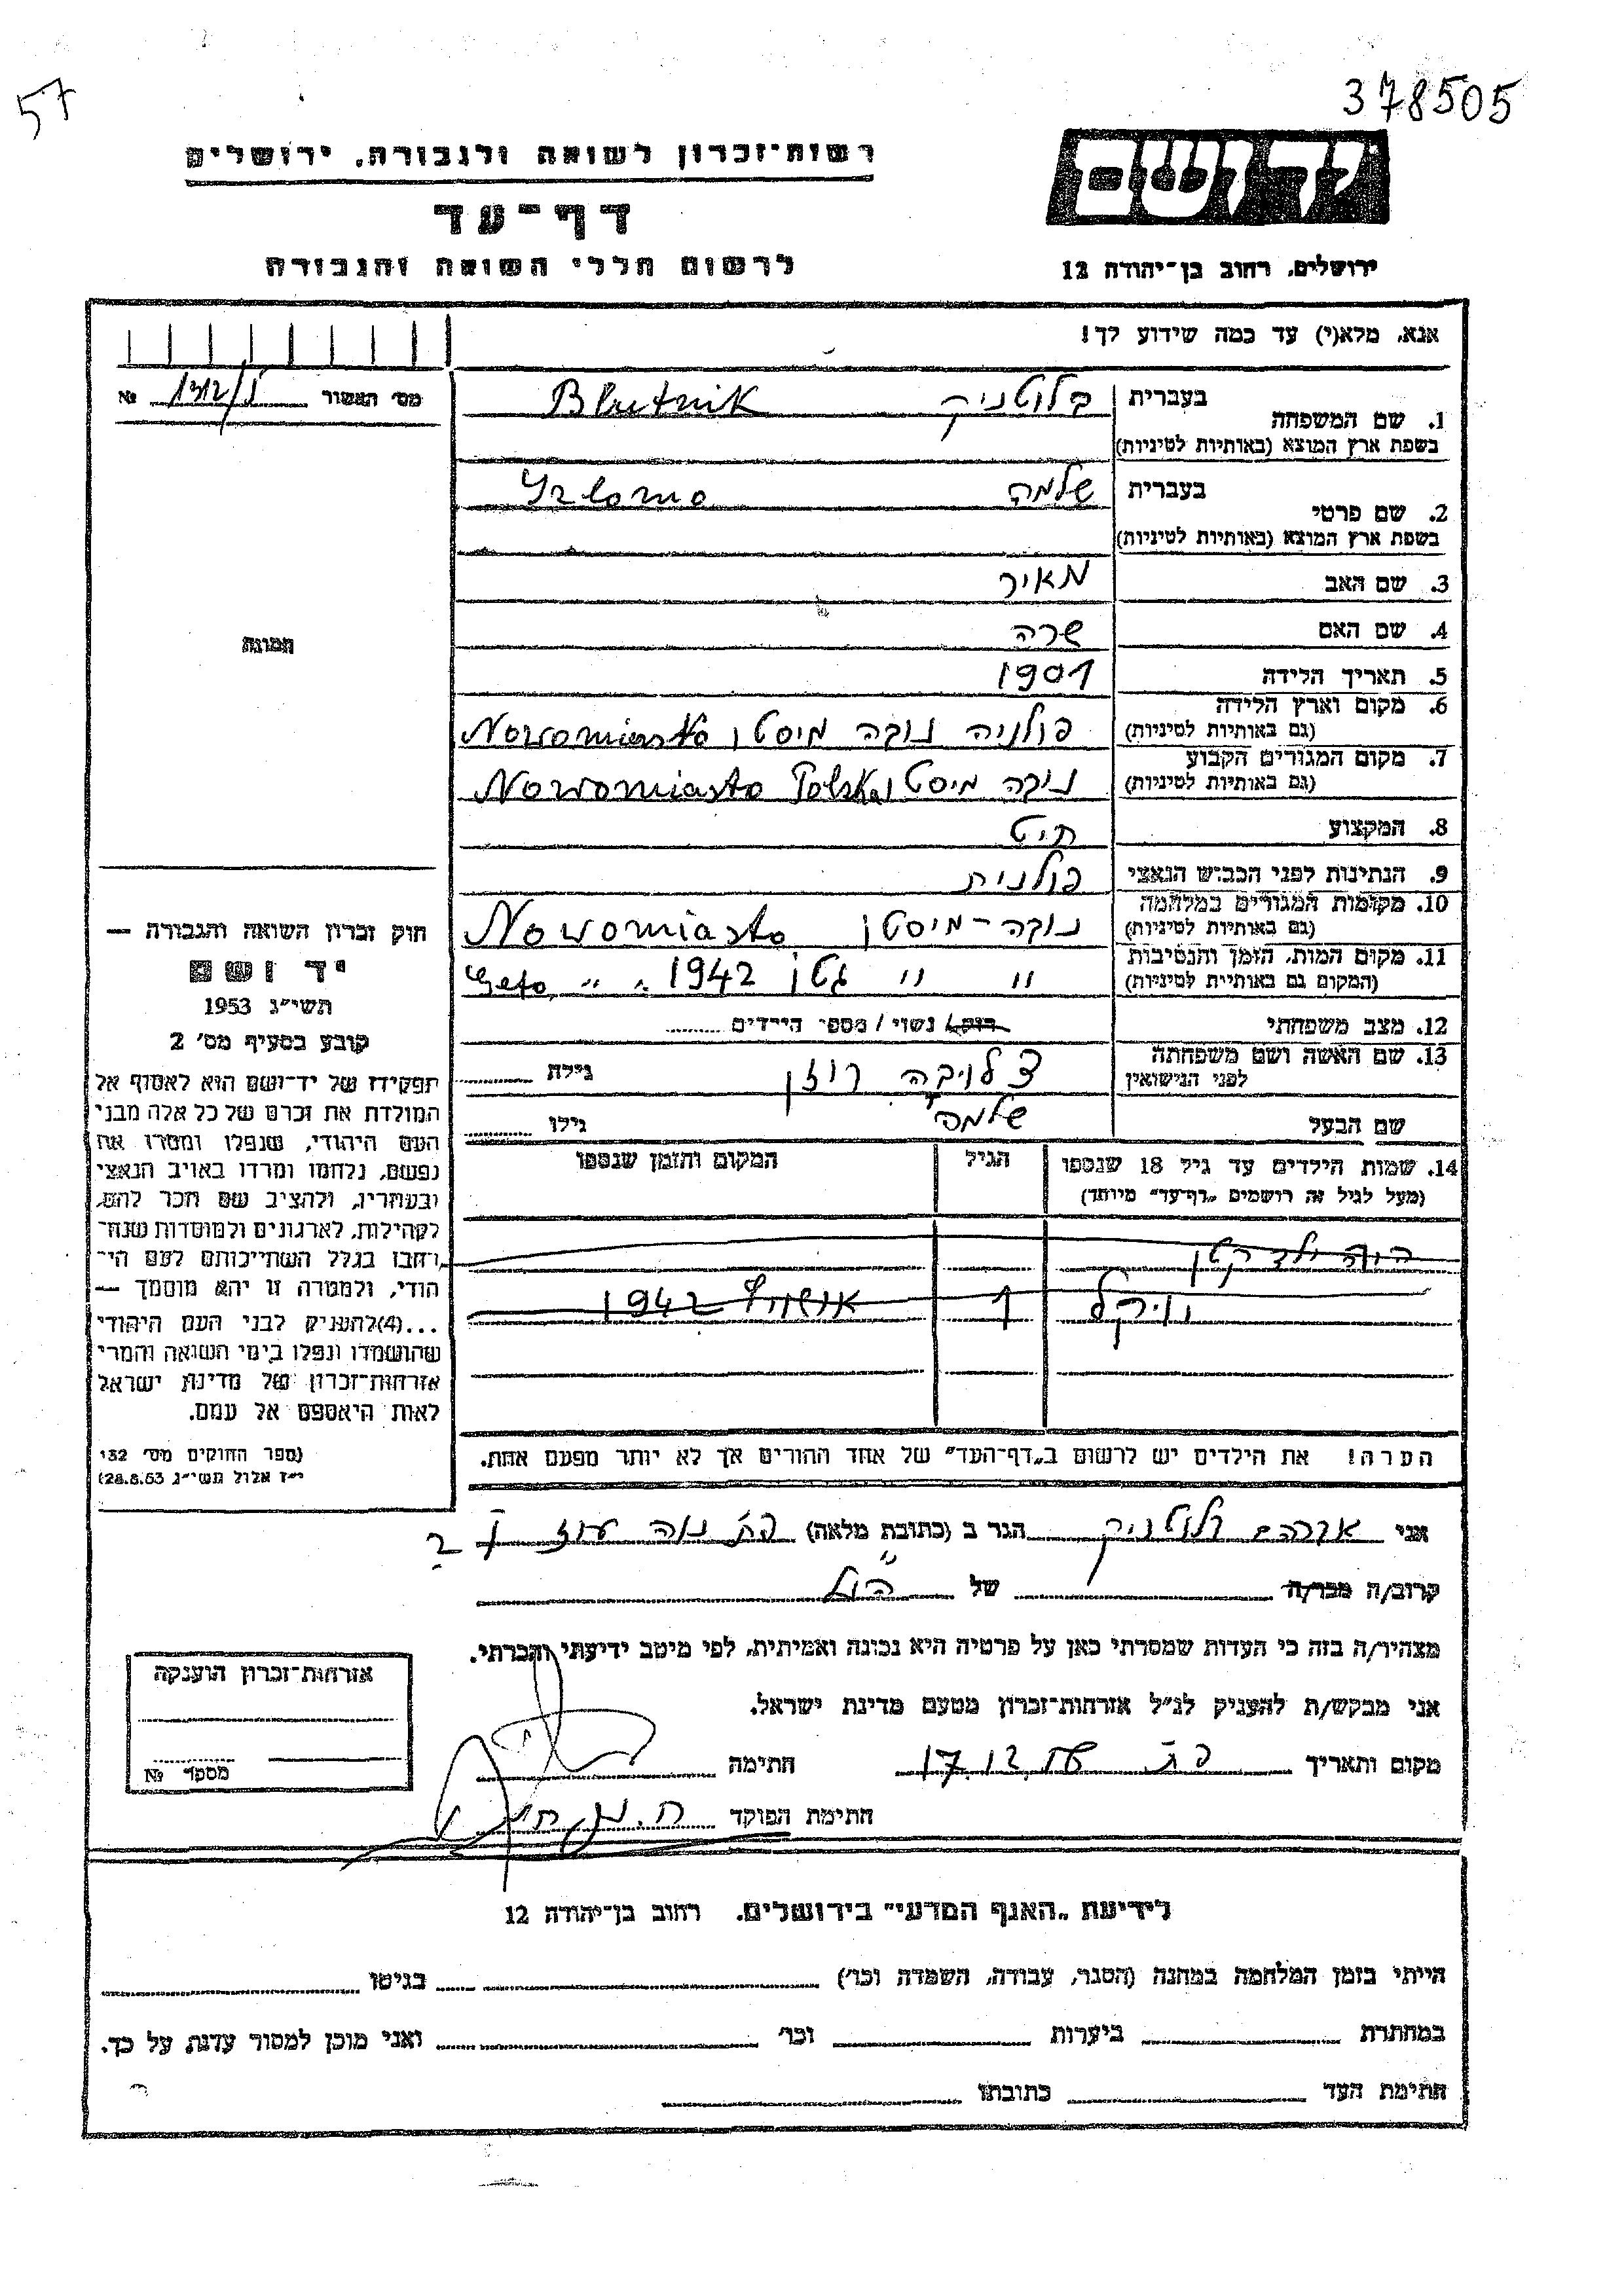 57
378505
רשות-זכרון לשואה ולגבורה, ירושלים
דף-עד
לרשום חללי השואה והגבורה
ירושלים, רחוב בן-יהודה 12
אנא, מלא(י) עד כמה שידוע לך!
מס' האשור № 1312/
1. שם המשפחה בעברית בלוטניק Blutnik
בשפת ארץ המוצא (באותיות לטיניות)
2. שם פרטי בעברית שלמה Szlomo
בשפת ארץ המוצא (באותיות לטיניות)
3. שם האב מאיר
4. שם האם שרה
תמונה
5. תאריך הלידה 1901
6. מקום וארץ הלידה פולניה נובה מיסטו Nowomiasto
(גם באותיות לטיניות)
7. מקום המגורים הקבוע נובה מיסטו Nowomiasto Polska
(גם באותיות לטיניות)
8. המקצוע חיט
9. הנתינות לפני הכבוש הנאצי פולנית
10. מקומות המגורים במלחמה נובה-מיסטו Nowomiasto
(גם באותיות לטיניות)
11. מקום המות, הזמן והנסיבות " " גטו 1942 " " Geto
(המקום גם באותיות לטיניות)
12. מצב משפחתי רווק/ נשוי / מספר הילדים
13. שם האשה ושם משפחתה רוזן גילה
לפני הנישואין
שם הבעל שלמה גילו
14. שמות הילדים עד גיל 18 שנספו הגיל המקום והזמן שנספו
(מעל לגיל זה רושמים „דף-עד" מיוחד)
היה ילד קטן
1942
הערה! את הילדים יש לרשום ב„דף-העד" של אחד ההורים אך לא יותר מפעם אחת.
חוק זכרון השואה והגבורה —
יד ושם
תשי"ג 1953
קובע בסעיף מס' 2
תפקידו של יד-ושם הוא לאסוף אל
המולדת את זכרם של כל אלה מבני
העם היהודי, שנפלו ומסרו את
נפשם, נלחמו ומרדו באויב הנאצי
ובעוזריו, ולהציב שם וזכר להם,
לקהילות, לארגונים ולמוסדות שנח-
רבו בגלל השתייכותם לעם הי-
הודי, ולמטרה זו יהא מוסמך —
...(4)להעניק לבני העם היהודי
שהושמדו ונפלו בימי השואה והמרי
אזרחות-זכרון של מדינת ישראל
לאות היאספם אל עמם.
(ספר החוקים מס' 132
י"ז אלול תשי"ג 28.8.53)
אני אברהם בלוטניק הגר ב (כתובת מלאה) פ"ת נוה עוז
קרוב/ה מכר/ה של
מצהיר/ה בזה כי העדות שמסרתי כאן על פרטיה היא נכונה ואמיתית, לפי מיטב ידיעתי והכרתי.
אני מבקש/ת להעניק לנ"ל אזרחות-זכרון מטעם מדינת ישראל.
מקום ותאריך 17.12 חתימה
חתימת הפוקד
אזרחות-זכרון הוענקה
מספר №
לידיעת „האגף המדעי" בירושלים, רחוב בן-יהודה 12
הייתי בזמן המלחמה במחנה (הסגר, עבודה, השמדה וכו') בגיטו
במחתרת ביערות וכו' ואני מוכן למסור עדות על כך.
חתימת העד כתובתו